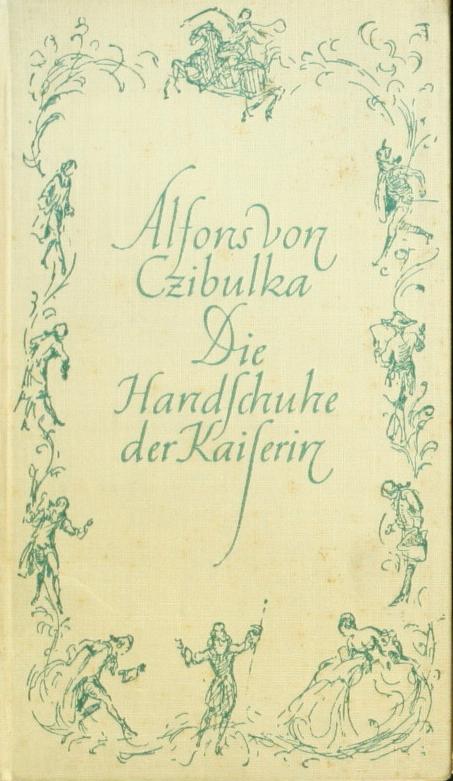 Alfons von
Czibulka
Die
Handſchuhe
der Kaiſerin